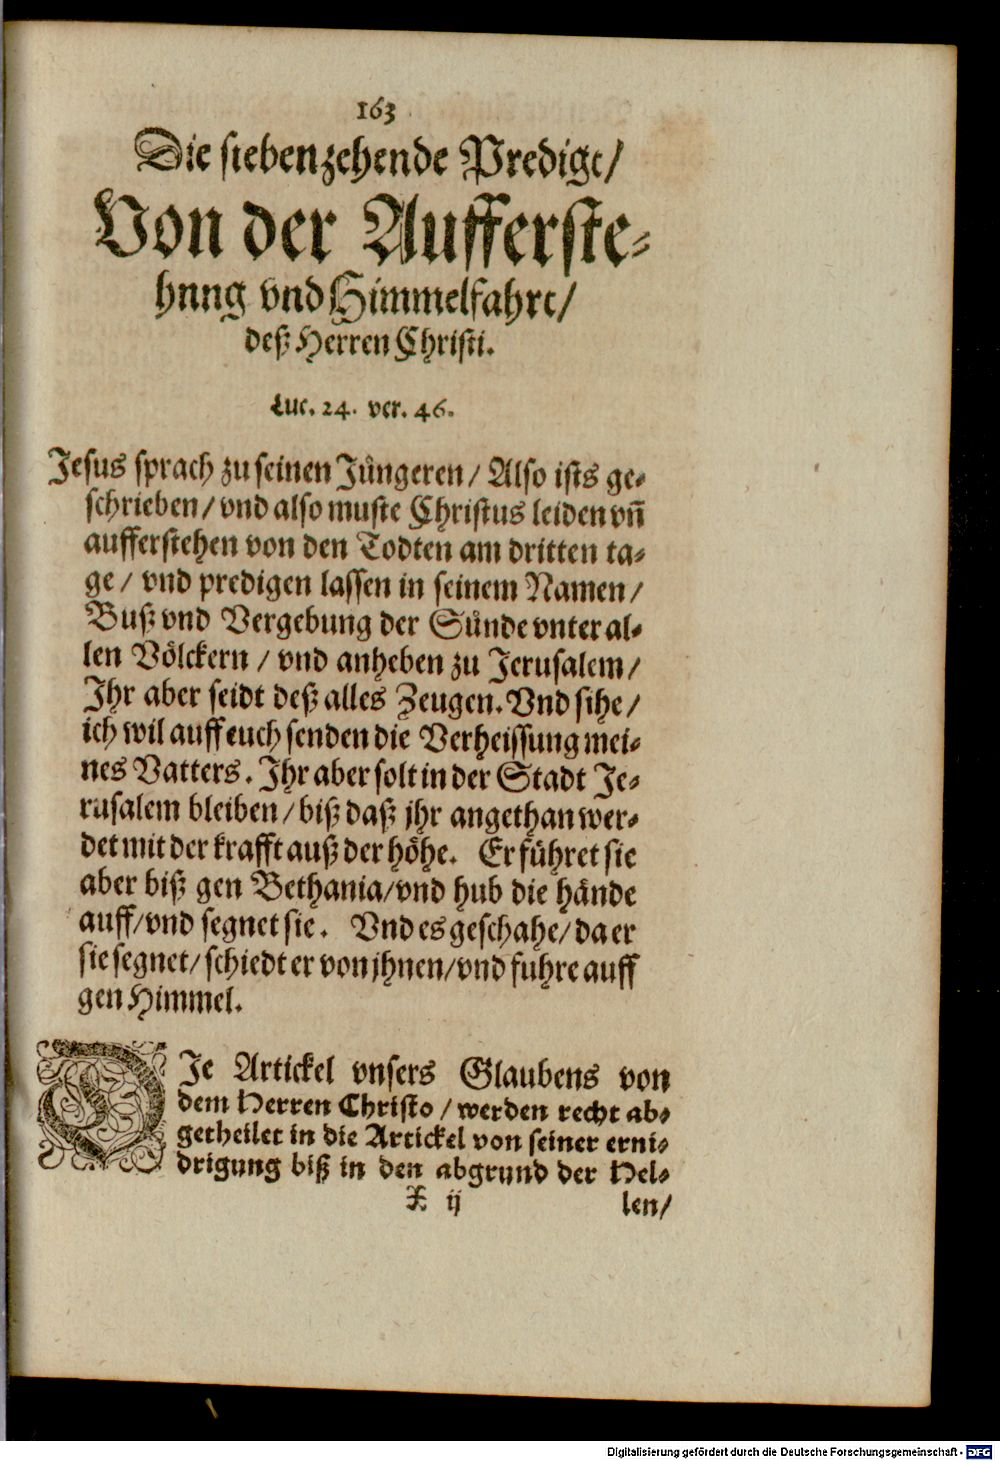 163
Die siebenzehende Predigt/
Von der Aufferste-
hnng vnd Himmelfahrt/
deß Herren Christi.
Luc. 24. ver. 46.
Jesus sprach zu seinen Jüngeren / Also ists ge-
schrieben / vnd also muste Christus leiden vñ
aufferstehen von den Todten am dritten ta-
ge / vnd predigen lassen in seinem Namen /
Buß vnd Vergebung der Sünde vnter al-
len Völckern / vnd anheben zu Jerusalem /
Ihr aber seidt deß alles Zeugen. Vnd sihe /
ich wil auff euch senden die Verheissung mei-
nes Vatters. Ihr aber solt in der Stadt Je-
rusalem bleiben / biß daß jhr angethan wer-
det mit der krafft auß der höhe. Er führet sie
aber biß gen Bethania/vnd hub die hände
auff/vnd segnet sie. Vnd es geschahe/ da er
sie segnet/ schiedt er von jhnen/vnd fuhre auff
gen Himmel.
DIe Artickel vnsers Glaubens von
dem Herren Christo / werden recht ab-
getheilet in die Artickel von seiner erni-
drigung biß in den abgrund der Hel-
X ij len/
Digitalisierung gefördert durch die Deutsche Forschungsgemeinschaft - DFG